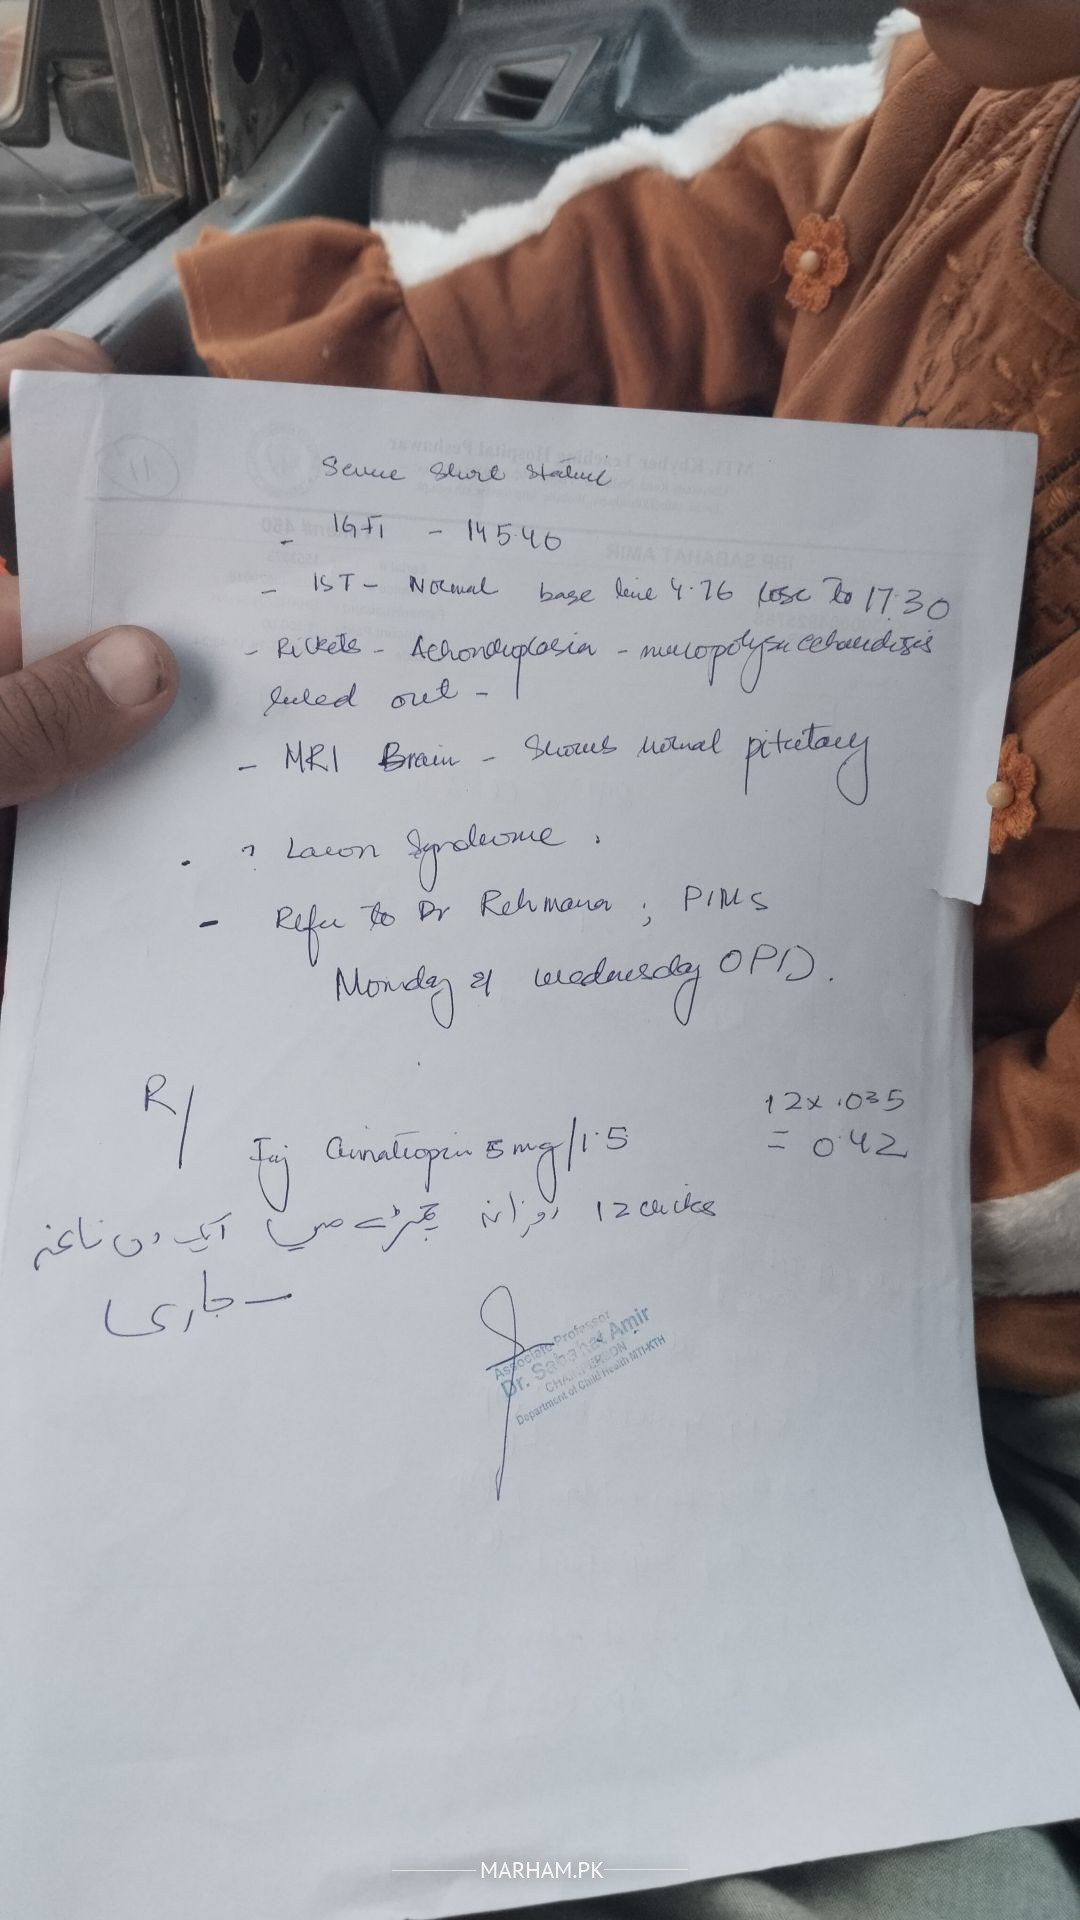 Severe Short Stature
- IGF1 - 145.40
- IST - Normal base line 4.76 rose to 17.30
- Rickets - Achondroplasia - mucopolysaccharidosis
ruled out -
- MRI Brain - Shows normal pituitary
- ? Laron Syndrome.
- Refer to Dr Rehmana ; PIMS
Monday & Wednesday OPD.
R/
12 x .035
= 0.42
Inj 5 mg/1.5
12 clicks روزانہ چمڑے میں ایک دن ناغہ
جاری
Associate Professor
Dr. Sabahat Amir
CHAIRPERSON
Department of Child Health MTI-KTH
MARHAM.PK